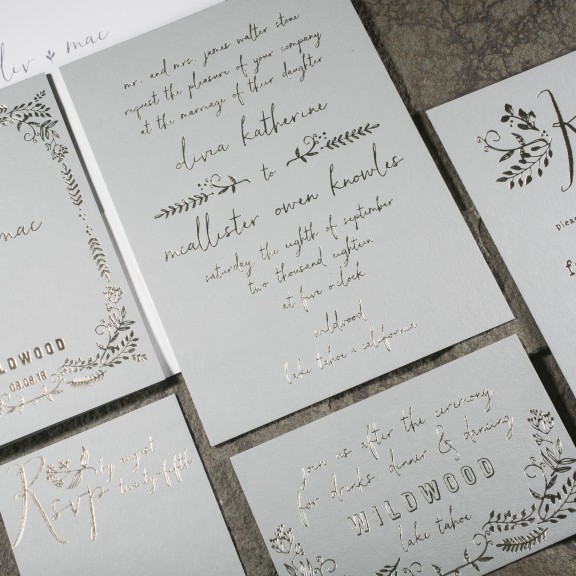 liv mac
mr. and mrs. james walter stone
request the pleasure of your company
at the marriage of their daughter
olivia katherine
to
mcallister owen knowles
saturday, the eighth of september
two thousand eighteen
at five o'clock
wildwood
lake tahoe, california
mac
LDWOOD
08.08.18
Rsvp
by august
twenty-fifth
join us after the ceremony
for drinks, dinner & dancing
WILDWOOD
lake tahoe
R
plea
f